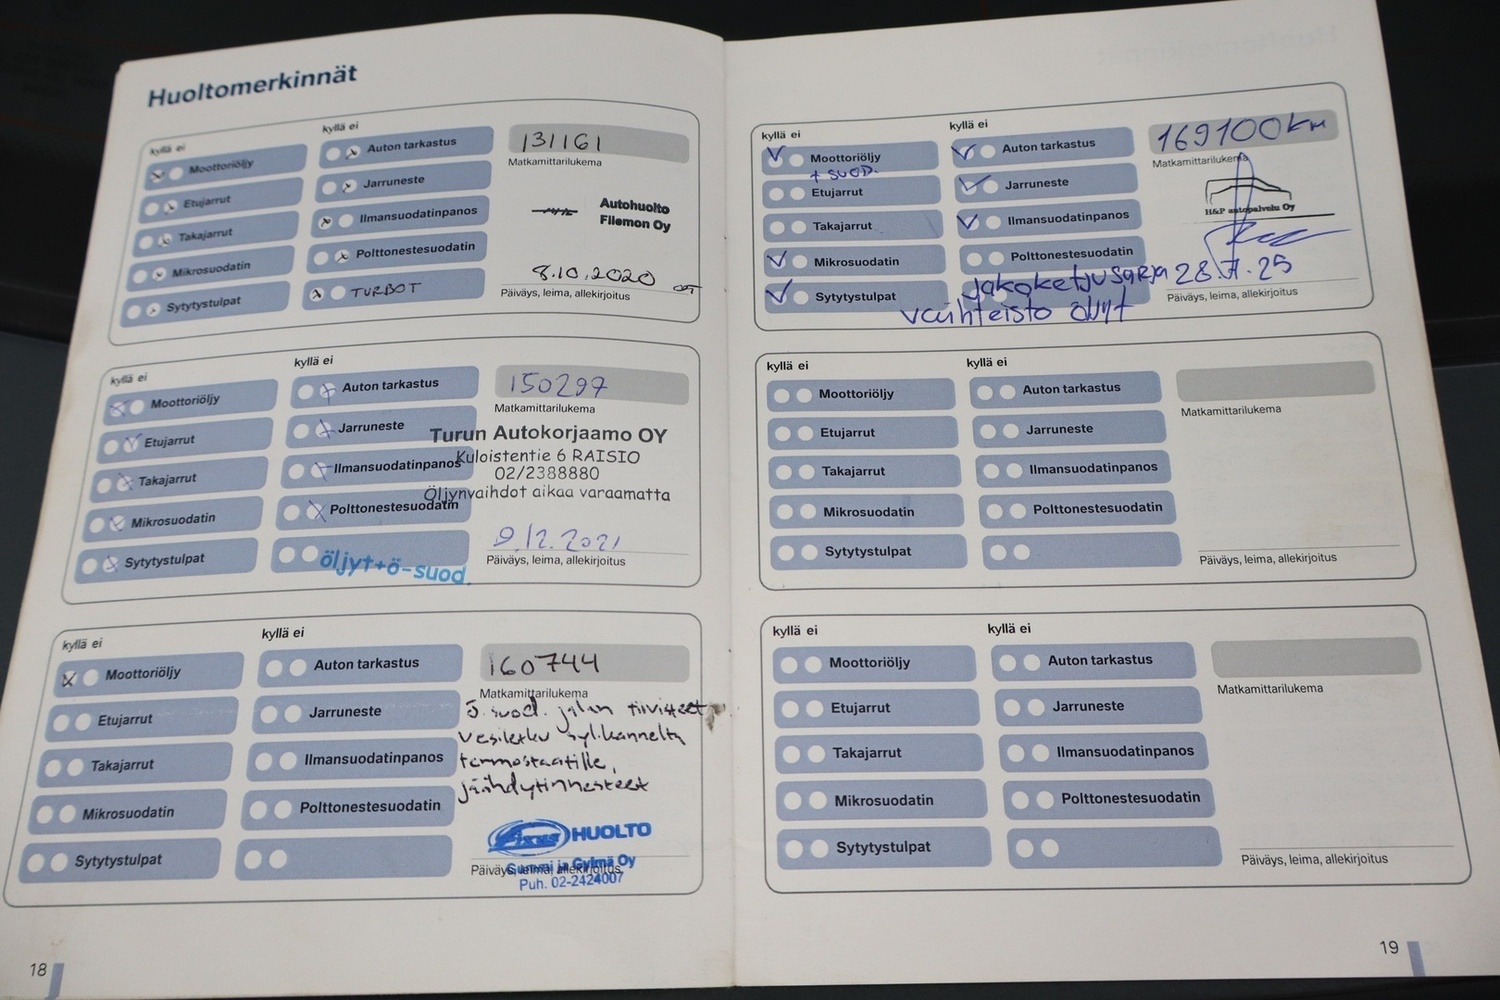 Huoltomerkinnät
kyllä ei
kyllä ei
Moottoriöljy
Etujarrut
Takajarrut
Mikrosuodatin
Sytytystulpat
Auton tarkastus
Jarruneste
Ilmansuodatinpanos
Polttonestesuodatin
TURBOT
131161
Matkamittarilukema
Autohuolto
Filemon Oy
8.10.2020
Päiväys, leima, allekirjoitus
kyllä ei
kyllä ei
Moottoriöljy
Etujarrut
Takajarrut
Mikrosuodatin
Sytytystulpat
Auton tarkastus
Jarruneste
Ilmansuodatinpanos
Polttonestesuodatin
öljyt+ö-suod.
150297
Matkamittarilukema
Turun Autokorjaamo OY
Kuloistentie 6 RAISIO
02/2388880
Öljynvaihdot aikaa varaamatta
9.12.2021
Päiväys, leima, allekirjoitus
kyllä ei
kyllä ei
Moottoriöljy
Etujarrut
Takajarrut
Mikrosuodatin
Sytytystulpat
Auton tarkastus
Jarruneste
Ilmansuodatinpanos
Polttonestesuodatin
160744
Matkamittarilukema
ö.suod. jalan tiivisteet
vesiletku sylikannelta
termostaatille,
jäähdytinnesteet
Fixus HUOLTO
Suomi ja Gylmä Oy
Puh. 02-2424007
Päiväys, leima, allekirjoitus
18
kyllä ei
kyllä ei
Moottoriöljy
+ suod.
Etujarrut
Takajarrut
Mikrosuodatin
Sytytystulpat
Auton tarkastus
Jarruneste
Ilmansuodatinpanos
Polttonestesuodatin
Jakoketjusarja
vaihteisto öljyt
169100km
Matkamittarilukema
H&P autopalvelu Oy
28.7.25
Päiväys, leima, allekirjoitus
kyllä ei
kyllä ei
Moottoriöljy
Etujarrut
Takajarrut
Mikrosuodatin
Sytytystulpat
Auton tarkastus
Jarruneste
Ilmansuodatinpanos
Polttonestesuodatin
Matkamittarilukema
Päiväys, leima, allekirjoitus
kyllä ei
kyllä ei
Moottoriöljy
Etujarrut
Takajarrut
Mikrosuodatin
Sytytystulpat
Auton tarkastus
Jarruneste
Ilmansuodatinpanos
Polttonestesuodatin
Matkamittarilukema
Päiväys, leima, allekirjoitus
19